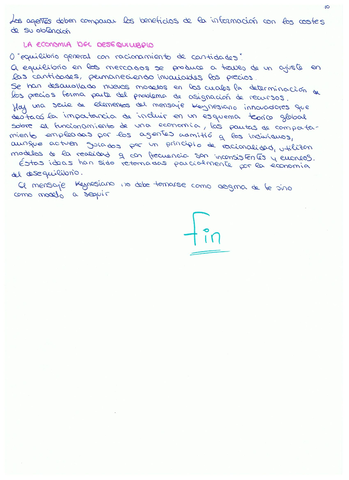 Los agentes deben comparar los beneficios de la información con los costes
de su obtención
LA ECONOMIA DEL DESEQUILIBRIO
O "equilibrio general con racionamiento de cantidades"
El equilibrio en los mercados se produce a través de un ajuste en
las cantidades, permaneciendo invariados los precios.
Se han desarrollado nuevos modelos en los cuales la determinación de
los precios forma parte del problema de asignación de recursos.
Hay una serie de elementos del mensaje Keynesiano innovadores que
destacó la importancia de incluir en un esquema teórico global
sobre el funcionamiento de una economía, las pautas de comporta-
miento empleadas por los agentes admitió q los individuos,
aunque actúen guiados por un principio de racionalidad, utilizan
modelos de la realidad q con frecuencia son inconsistentes y
Estas ideas han sido retomadas parcialmente por la economía
del desequilibrio.
El mensaje Keynesiano no debe tomarse como dogma de fe sino
como modelo a seguir
fin